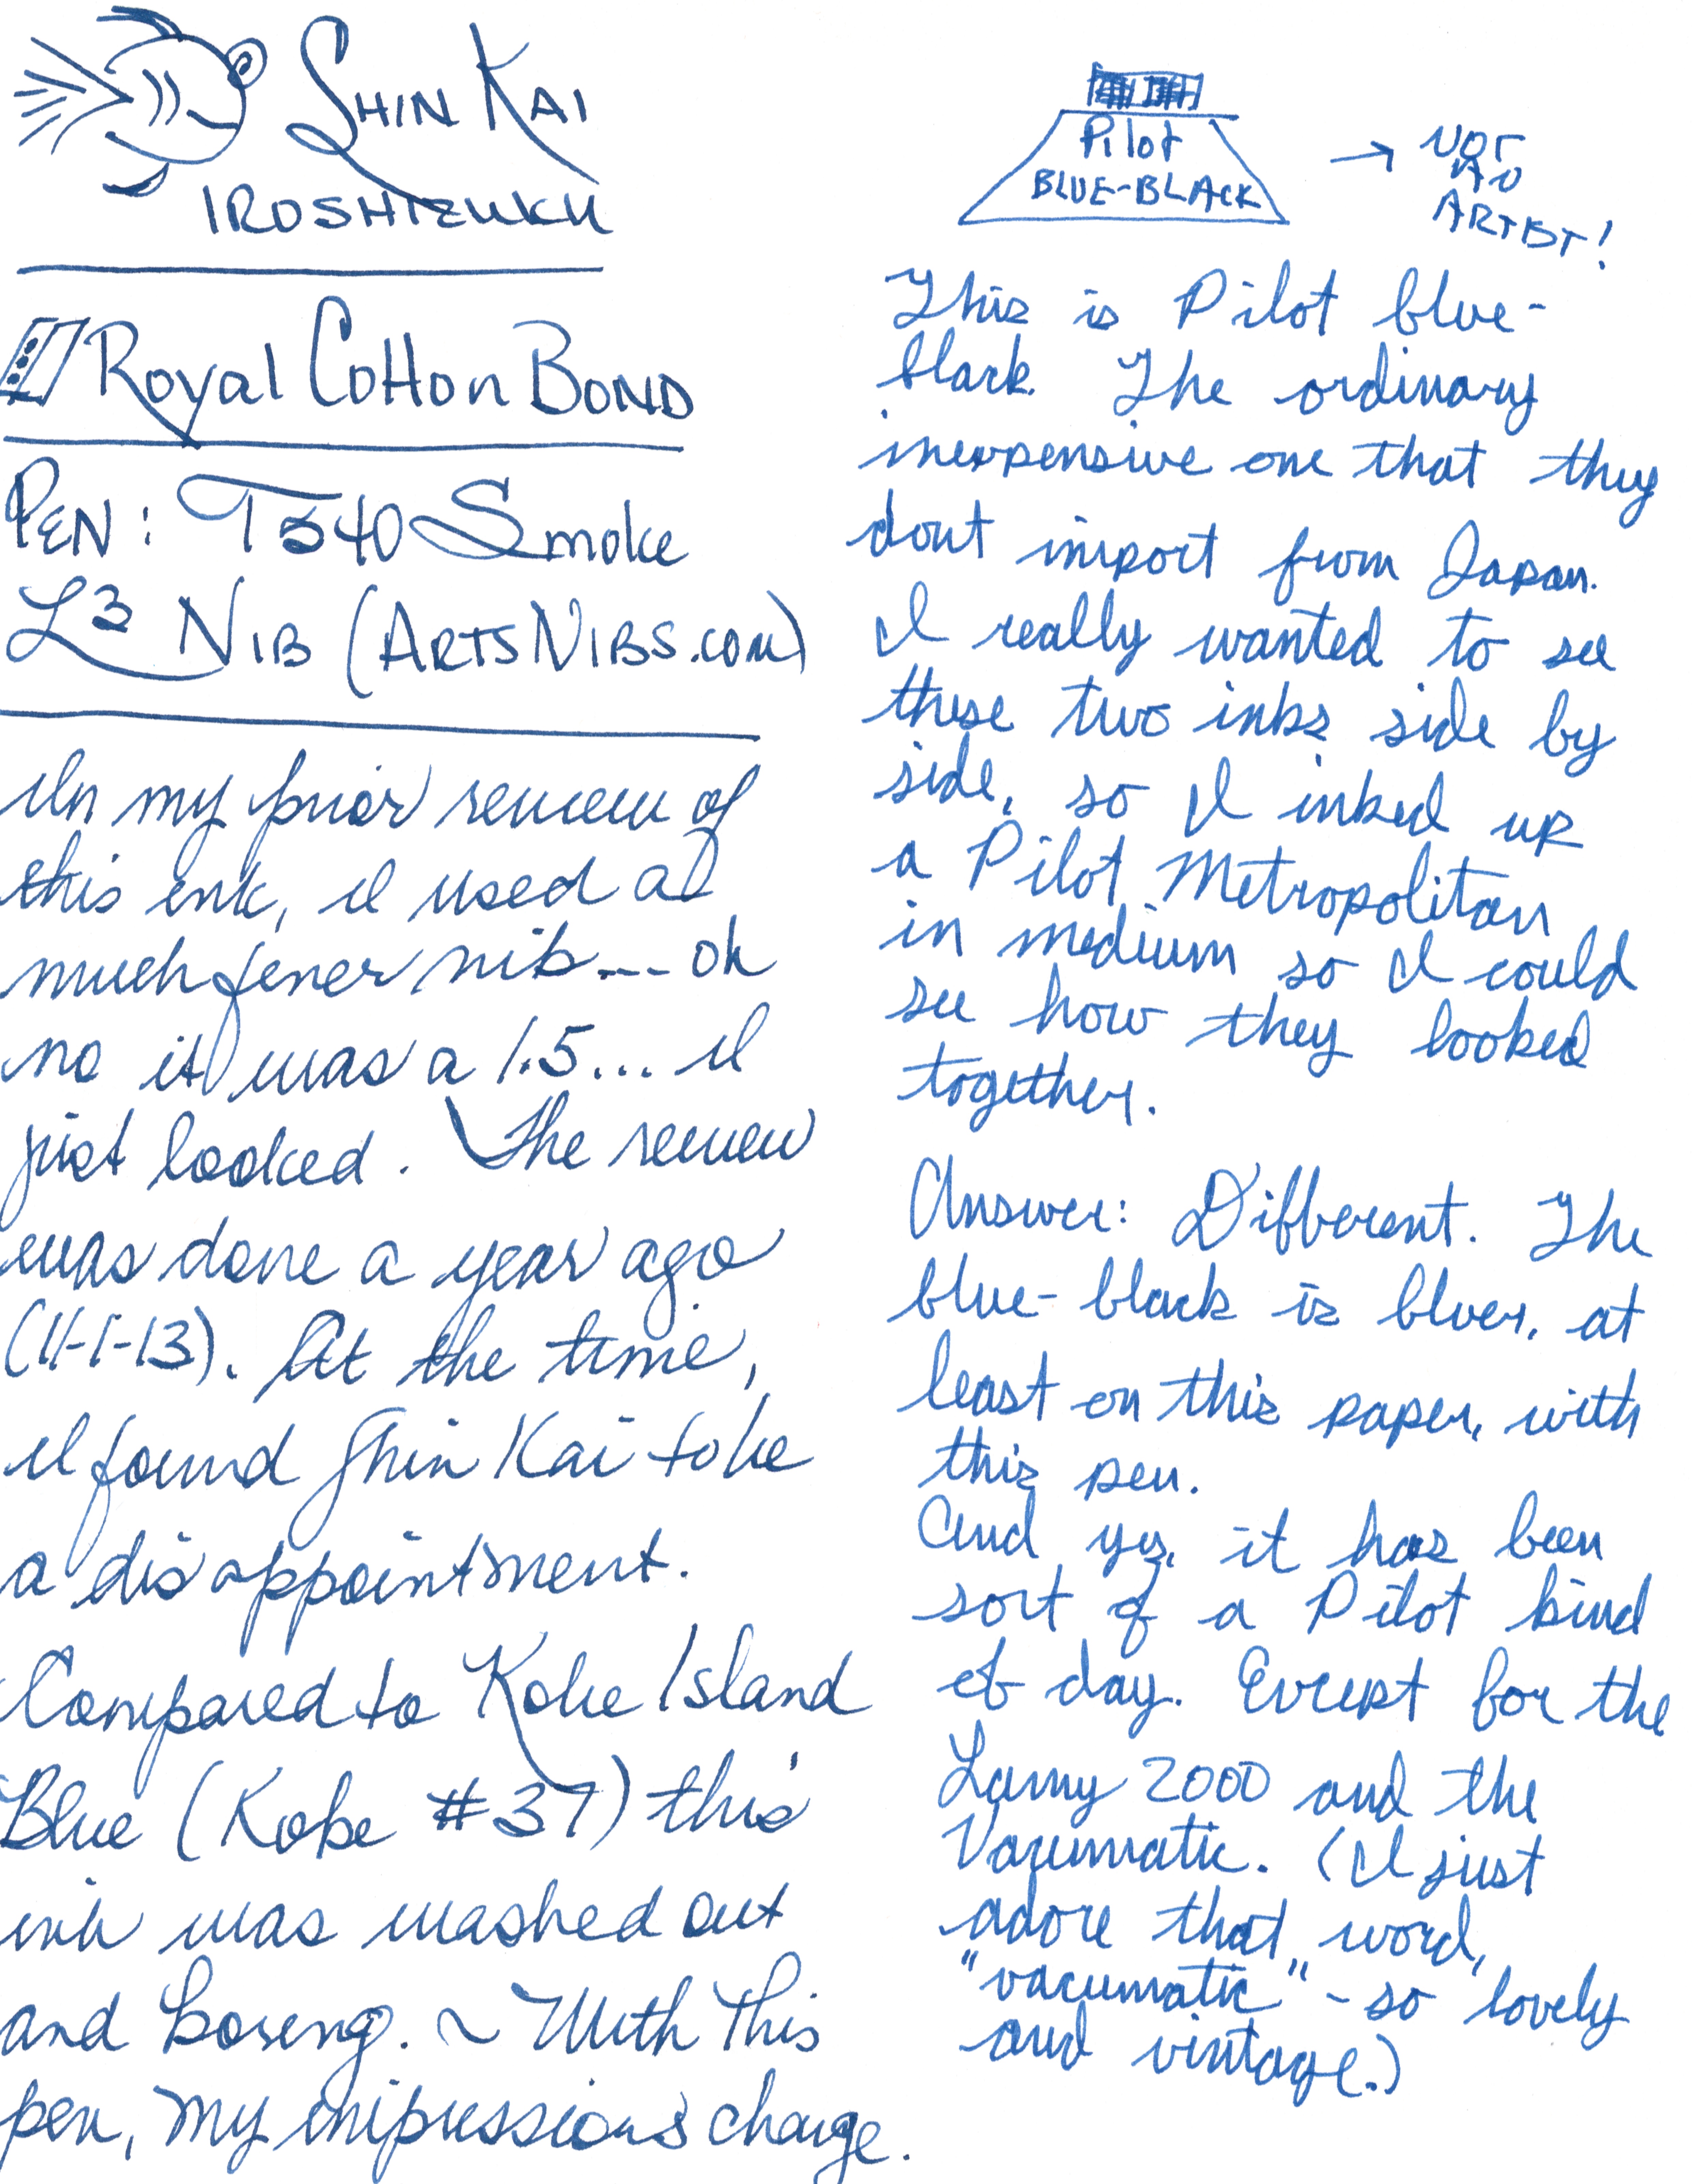 Shin Kai
IROSHIZUKU
Royal Cotton Bond
PEN: T540 Smoke
L3 NIB (ARTSNIBS.com)
In my prior review of
this ink, I used a
much finer nib--- oh
no it was a 1.5... I
just looked. The review
was done a year ago
(11-1-13). At the time,
I found Shin Kai to be
a disappointment.
Compared to Kobe Island
Blue (Kobe #37) this
ink was washed out
and boring. ~ With this
pen, my impressions change.
Pilot
BLUE-BLACK
→ NOT
AN
ARTIST!
This is Pilot blue-
black. The ordinary
inexpensive one that they
dont import from Japan.
I really wanted to see
these two inks side by
side, so I inked up
a Pilot Metropolitan
in medium so I could
see how they looked
together.
Answer: Different. The
blue-black is bluer, at
least on this paper, with
this pen.
And yes, it has been
sort of a Pilot kind
of day. Except for the
Lamy 2000 and the
Vacumatic. (I just
adore that word,
"vacumatic" - so lovely
and vintage.)